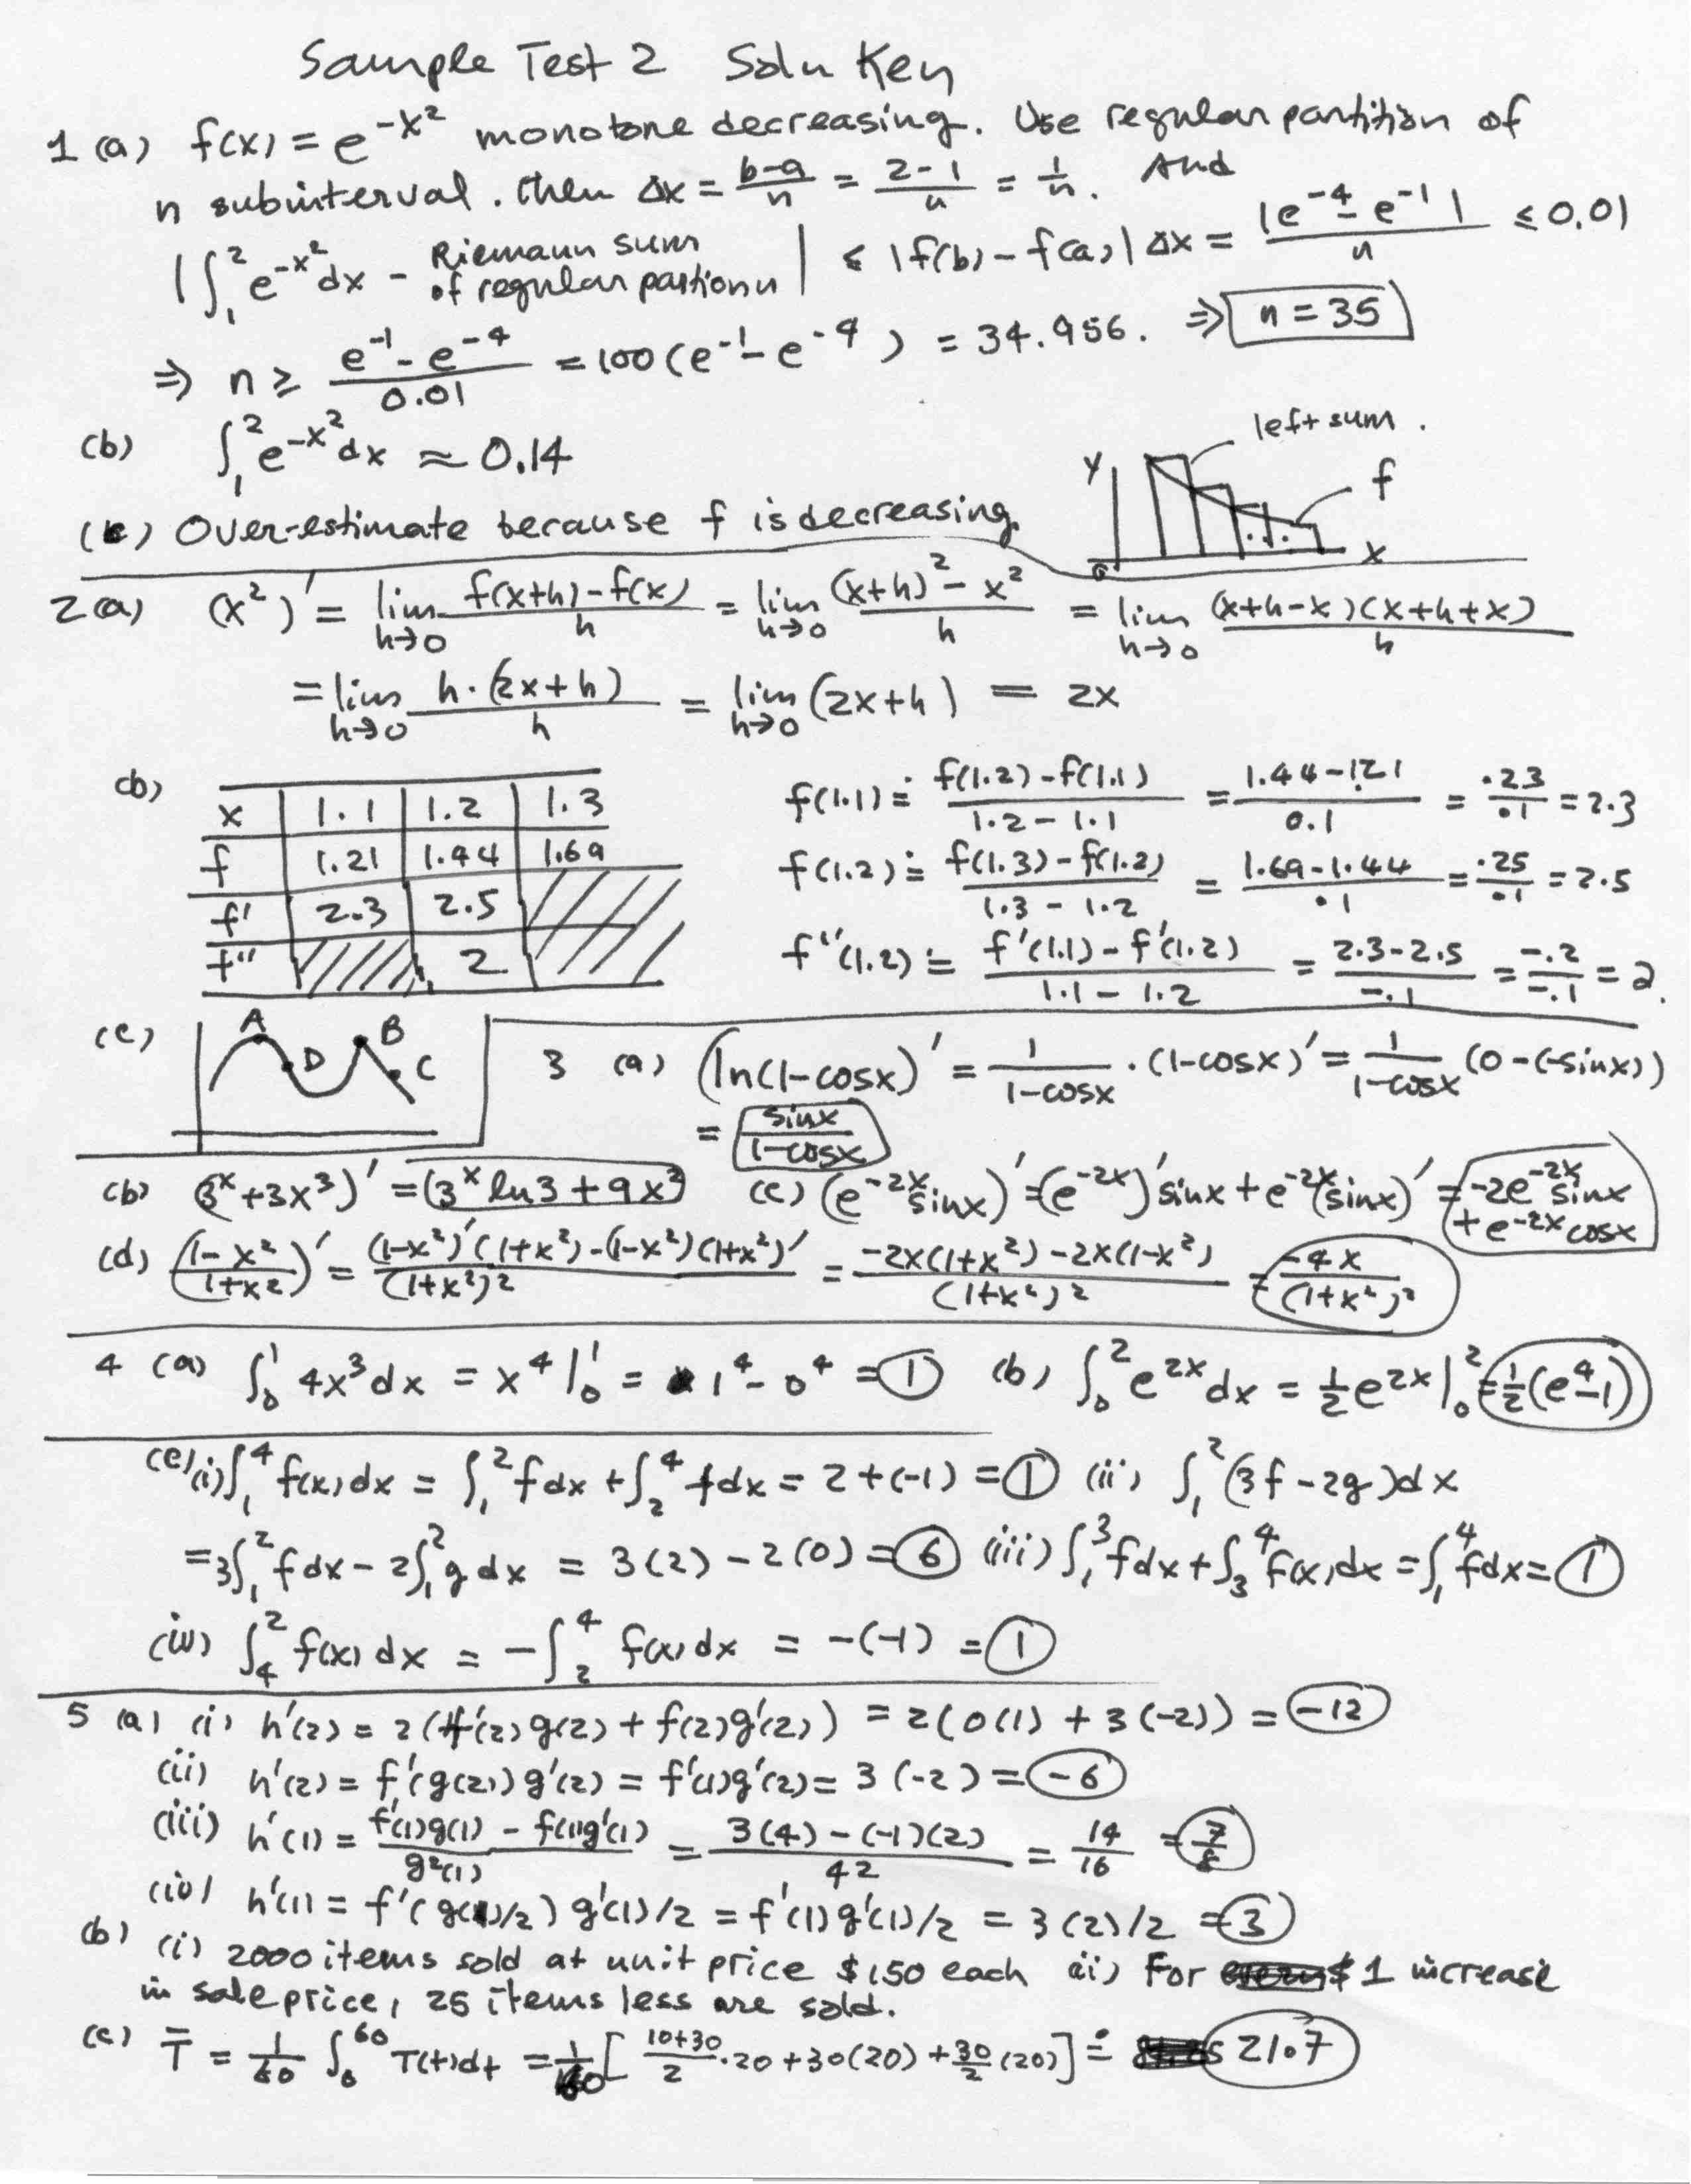 Sample Test 2 Soln Key
1 (a) f(x) = e^{-x^2} monotone decreasing. Use regular partition of
n subinterval. then Δx = \frac{b-a}{n} = \frac{2-1}{n} = \frac{1}{n}. And
|∫_1^2 e^{-x^2}dx - Riemann sum of regular partion n| ≤ |f(b) - f(a)| Δx = \frac{|e^{-4} - e^{-1}|}{n} ≤ 0.01
⇒ n ≥ \frac{e^{-1} - e^{-4}}{0.01} = 100(e^{-1} - e^{-4}) = 34.956. ⇒ n = 35
(b) ∫_1^2 e^{-x^2}dx ≈ 0.14
left sum.
y
f
x
0
(c) Over-estimate because f is decreasing.
2 (a) (x^2)' = lim_{h→0} \frac{f(x+h)-f(x)}{h} = lim_{h→0} \frac{(x+h)^2 - x^2}{h} = lim_{h→0} \frac{(x+h-x)(x+h+x)}{h}
= lim_{h→0} \frac{h·(2x+h)}{h} = lim_{h→0} (2x+h) = 2x
(b)
x 1.1 1.2 1.3
f 1.21 1.44 1.69
f' 2.3 2.5
f'' 2
f(1.1) ≐ \frac{f(1.2)-f(1.1)}{1.2-1.1} = \frac{1.44-1.21}{0.1} = \frac{.23}{.1} = 2.3
f(1.2) ≐ \frac{f(1.3)-f(1.2)}{1.3-1.2} = \frac{1.69-1.44}{.1} = \frac{.25}{.1} = 2.5
f''(1.2) ≐ \frac{f'(1.1)-f'(1.2)}{1.1-1.2} = \frac{2.3-2.5}{-.1} = \frac{-.2}{-.1} = 2.
(c) A D B C
3 (a) (ln(1-cosx))' = \frac{1}{1-cosx}·(1-cosx)' = \frac{1}{1-cosx}(0-(-sinx))
= \frac{sinx}{1-cosx}
(b) (3^x + 3x^3)' = (3^x ln3 + 9x^2) (c) (e^{-2x} sinx)' = (e^{-2x})' sinx + e^{-2x}(sinx)' = -2e^{-2x} sinx
+ e^{-2x} cosx
(d) (\frac{1-x^2}{1+x^2})' = \frac{(1-x^2)'(1+x^2)-(1-x^2)(1+x^2)'}{(1+x^2)^2} = \frac{-2x(1+x^2)-2x(1-x^2)}{(1+x^2)^2} = \frac{-4x}{(1+x^2)^2}
4 (a) ∫_0^1 4x^3dx = x^4|_0^1 = 1^4 - 0^4 = 1 (b) ∫_0^2 e^{2x}dx = \frac{1}{2}e^{2x}|_0^2 = \frac{1}{2}(e^4-1)
(c) (i) ∫_1^4 f(x)dx = ∫_1^2 fdx + ∫_2^4 fdx = 2+(-1) = 1 (ii) ∫_1^2 (3f-2g)dx
= 3∫_1^2 fdx - 2∫_1^2 gdx = 3(2) - 2(0) = 6 (iii) ∫_1^3 fdx + ∫_3^4 f(x)dx = ∫_1^4 fdx = 1
(iv) ∫_4^2 f(x)dx = -∫_2^4 f(x)dx = -(-1) = 1
5 (a) (i) h'(2) = 2(f'(2)g(2) + f(2)g'(2)) = 2(0(1) + 3(-2)) = -12
(ii) h'(2) = f'(g(2))g'(2) = f'(1)g'(2) = 3(-2) = -6
(iii) h'(1) = \frac{f'(1)g(1) - f(1)g'(1)}{g^2(1)} = \frac{3(4)-(-1)(2)}{4^2} = \frac{14}{16} = \frac{7}{8}
(iv) h'(1) = f'(g(1)/2) g'(1)/2 = f'(1)g'(1)/2 = 3(2)/2 = 3
(b) (i) 2000 items sold at unit price $150 each ii) For $1 increase
in sale price, 25 items less are sold.
(c) \bar{T} = \frac{1}{60} ∫_0^{60} T(t)dt = \frac{1}{60}[\frac{10+30}{2}·20 + 30(20) + \frac{30}{2}(20)] ≐ 21.7